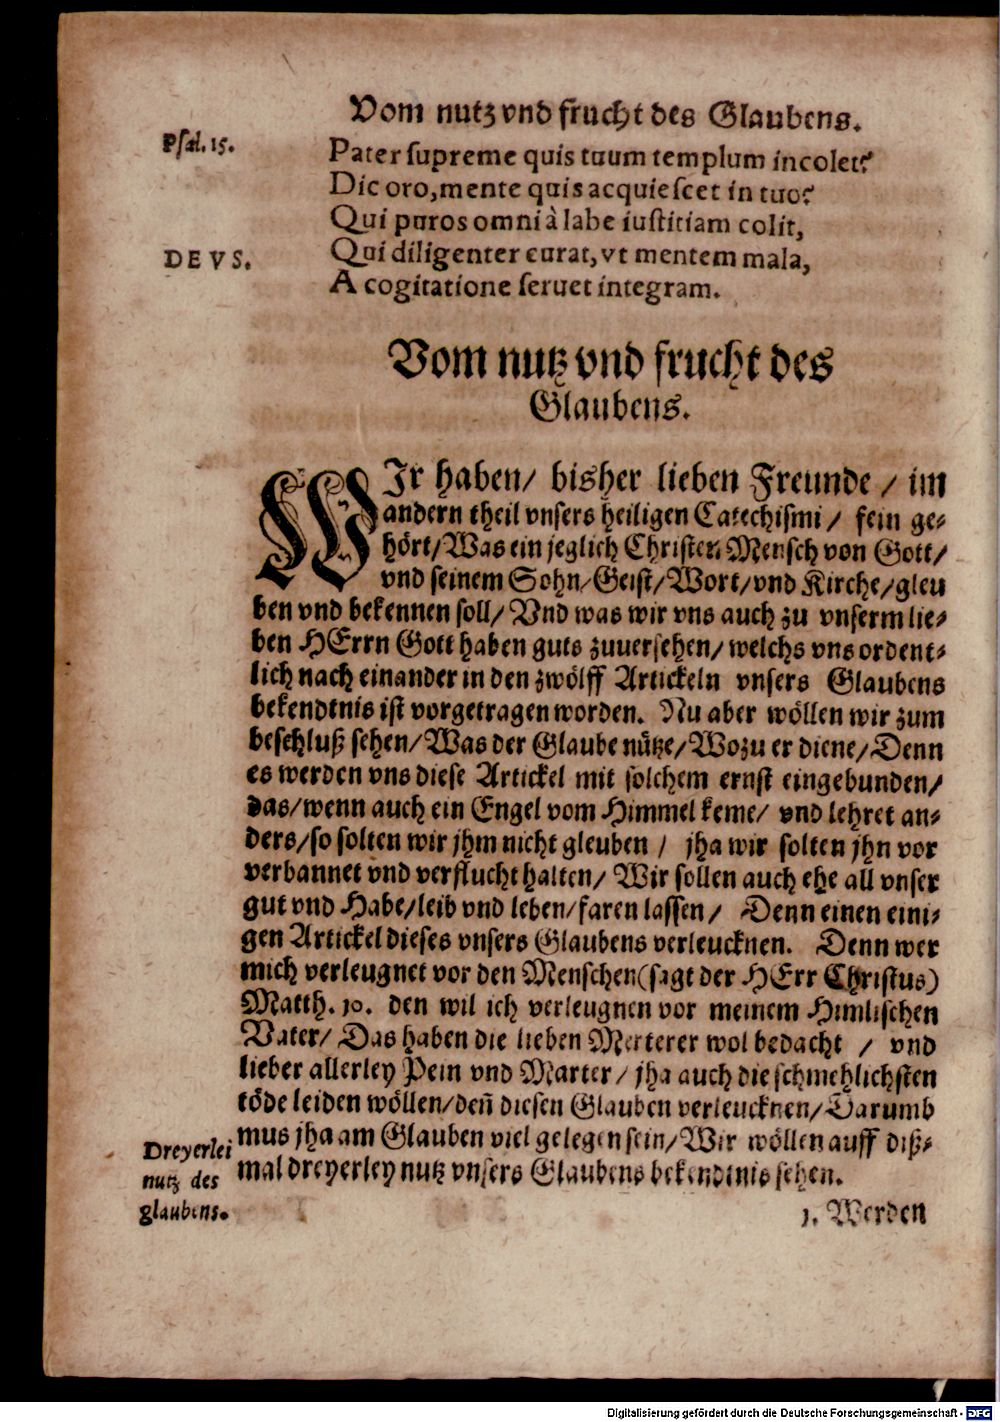 Vom nutz vnd frucht des Glaubens.
Psal. 15.
Pater supreme quis tuum templum incolet?
Dic oro, mente quis acquiescet in tuo?
Qui puros omni à labe iustitiam colit,
DEVS.
Qui diligenter curat, vt mentem mala,
A cogitatione seruet integram.
Vom nutz vnd frucht des
Glaubens.
WIr haben/ bisher lieben Freunde / im
andern theil vnsers heiligen Catechismi / fein ge-
hört/Was ein jeglich Christen Mensch von Gott/
vnd seinem Sohn/Geist/Wort/vnd Kirche/gleu
ben vnd bekennen soll/Vnd was wir vns auch zu vnserm lie-
ben HErrn Gott haben guts zuuersehen/welchs vns ordent-
lich nach einander in den zwölff Artickeln vnsers Glaubens
bekendtnis ist vorgetragen worden. Nu aber wöllen wir zum
beschluß sehen/Was der Glaube nütze/Wozu er diene/Denn
es werden vns diese Artickel mit solchem ernst eingebunden/
das/wenn auch ein Engel vom Himmel keme/ vnd lehret an-
ders/so solten wir jhm nicht gleuben / jha wir solten jhn vor
verbannet vnd verflucht halten/ Wir sollen auch ehe all vnser
gut vnd Habe/leib vnd leben/faren lassen/ Denn einen eini-
gen Artickel dieses vnsers Glaubens verleucknen. Denn wer
mich verleugnet vor den Menschen(sagt der HErr Christus)
Matth. 10. den wil ich verleugnen vor meinem Himlischen
Vater/ Das haben die lieben Merterer wol bedacht / vnd
lieber allerley Pein vnd Marter/ jha auch die schmehlichsten
töde leiden wöllen/deñ diesen Glauben verleucknen/Darumb
mus jha am Glauben viel gelegen sein/Wir wöllen auff diß-
mal dreyerley nutz vnsers Glaubens bekendtnis sehen.
Dreyerlei
nutz des
glaubens.
1. Werden
Digitalisierung gefördert durch die Deutsche Forschungsgemeinschaft - DFG